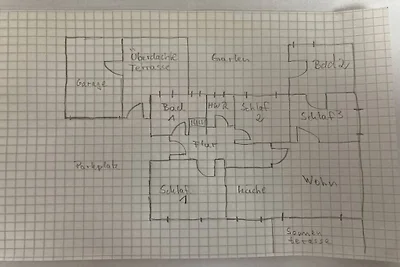 Überdachte
Terrasse
Garten
Bad 2
Garage
Bad
1
HWR
Schlaf
2
Schlaf 3
Flur
Parkplatz
Schlaf
1
Küche
Wohn
Sonnen
terrasse